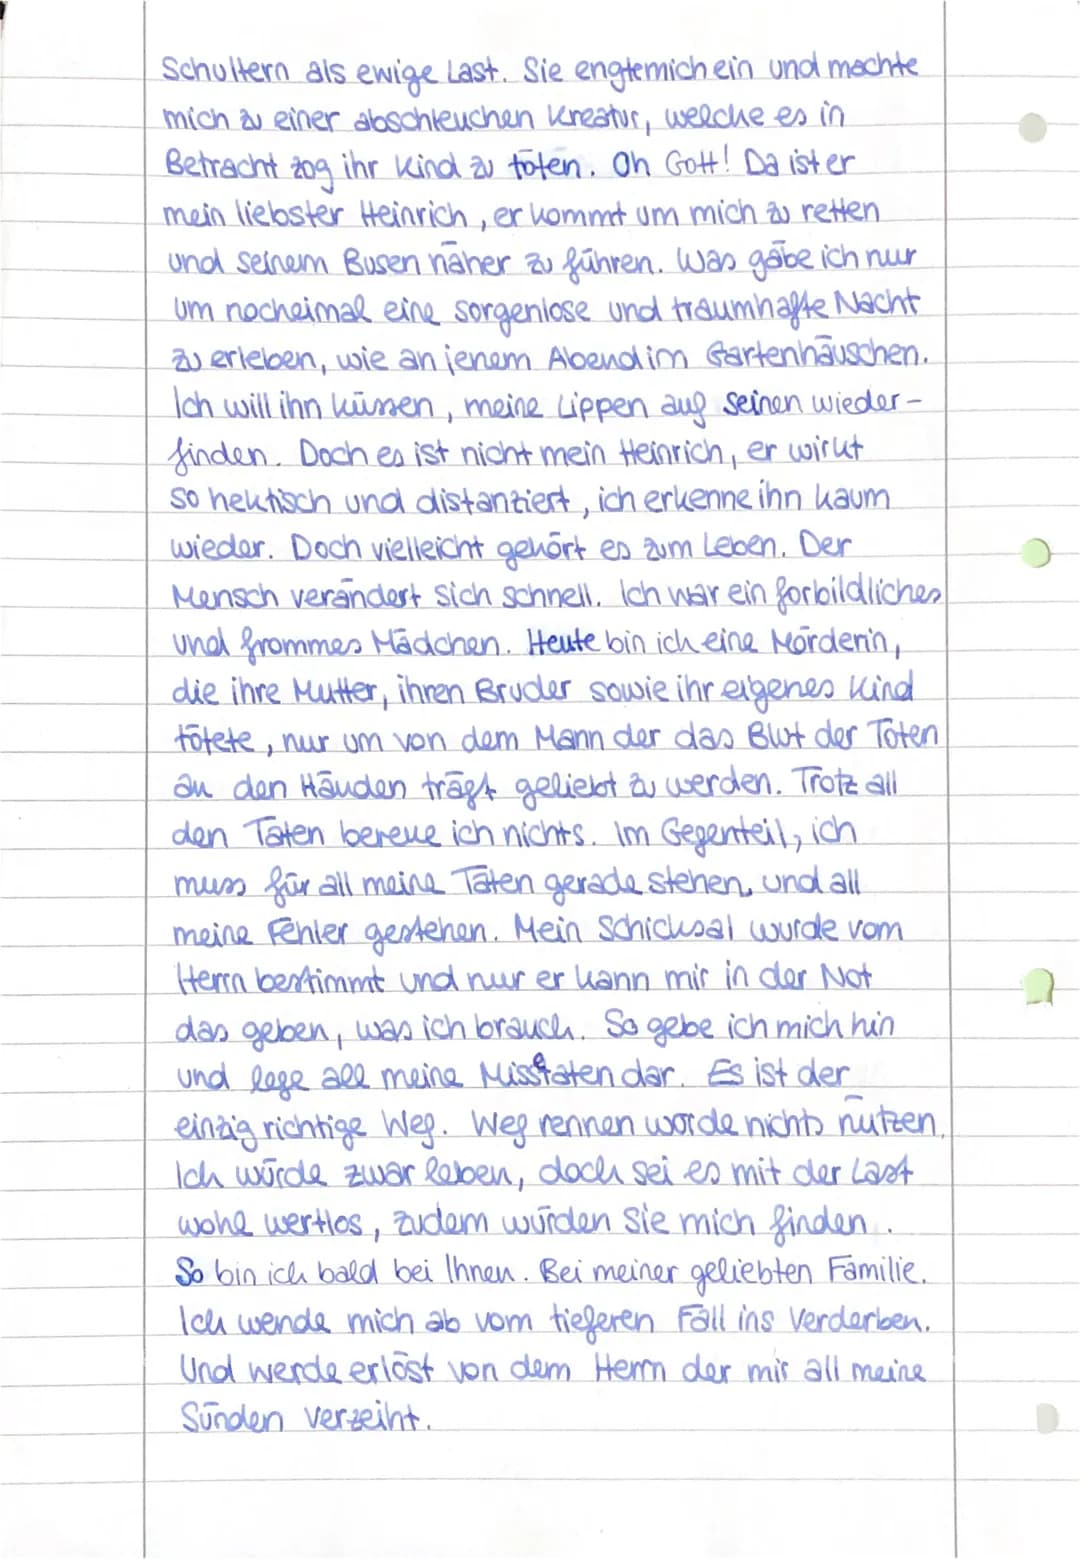 Schultern als ewige Last. Sie engte mich ein und machte
mich zu einer abscheuchen Kreatur, welche es in
Betracht zog ihr Kind zu töten. Oh Gott! Da ist er
mein liebster Heinrich, er kommt um mich zu retten
und seinem Busen näher zu führen. Was gäbe ich nur
um nocheimal eine sorgenlose und traumhafte Nacht
zu erleben, wie an jenem Abend im Gartenhäuschen.
Ich will ihn küssen, meine Lippen auf seinen wieder-
finden. Doch es ist nicht mein Heinrich, er wirkt
so hektisch und distanziert, ich erkenne ihn kaum
wieder. Doch vielleicht gehört es zum Leben. Der
Mensch verändert sich schnell. Ich war ein forbildliches
und frommes Mädchen. Heute bin ich eine Mörderin,
die ihre Mutter, ihren Bruder sowie ihr eigenes Kind
tötete, nur um von dem Mann der das Blut der Toten
an den Händen trägt geliebt zu werden. Trotz all
den Taten bereue ich nichts. Im Gegenteil, ich
muss für all meine Taten gerade stehen, und all
meine Fehler gestehen. Mein Schicksal wurde vom
Herrn bestimmt und nur er kann mir in der Not
das geben, was ich brauch. So gebe ich mich hin
und lege all meine Missetaten dar. Es ist der
einzig richtige Weg. Weg rennen würde nichts nützen.
Ich würde zwar leben, doch sei es mit der Last
wohl wertlos, zudem würden sie mich finden.
So bin ich bald bei Ihnen. Bei meiner geliebten Familie.
Ich wende mich ab vom tieferen Fall ins Verderben.
Und werde erlöst von dem Herrn der mir all meine
Sünden verzeiht.